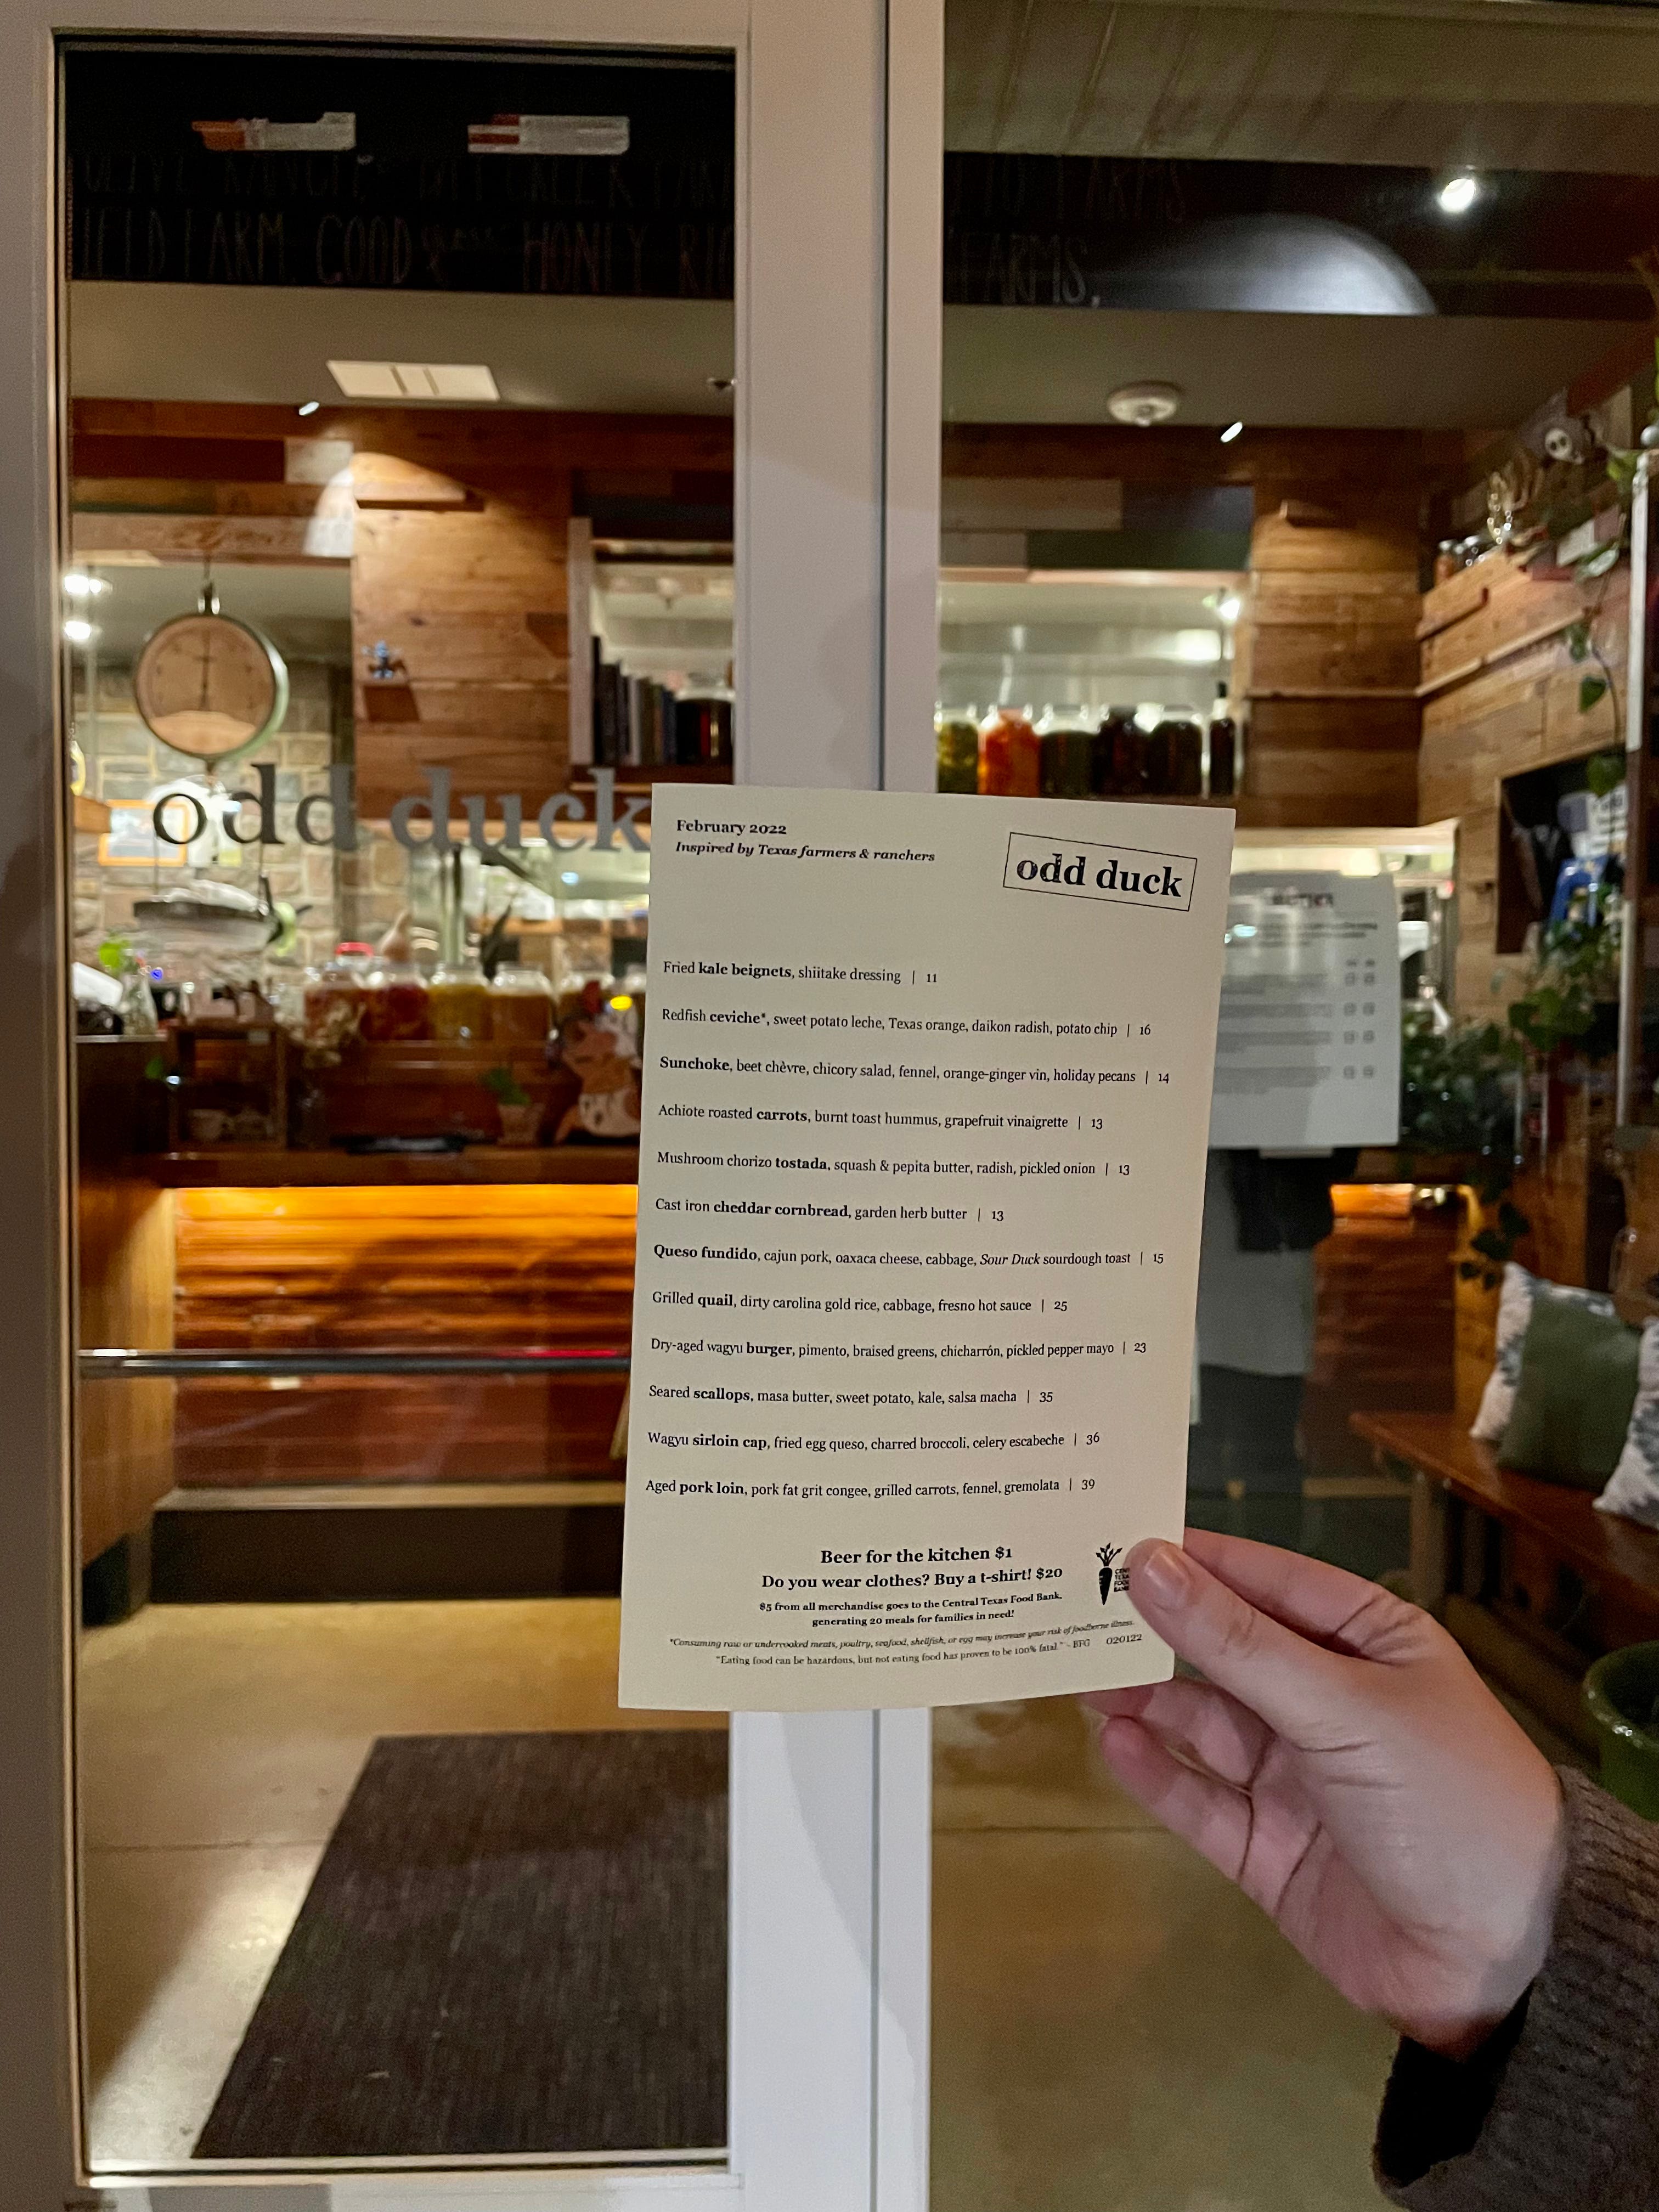 HONEY
FARMS.
odd duck
February 2022
Inspired by Texas farmers & ranchers
odd duck
Fried kale beignets, shiitake dressing | 11
Redfish ceviche*, sweet potato leche, Texas orange, daikon radish, potato chip | 16
Sunchoke, beet chèvre, chicory salad, fennel, orange-ginger vin, holiday pecans | 14
Achiote roasted carrots, burnt toast hummus, grapefruit vinaigrette | 13
Mushroom chorizo tostada, squash & pepita butter, radish, pickled onion | 13
Cast iron cheddar cornbread, garden herb butter | 13
Queso fundido, cajun pork, oaxaca cheese, cabbage, Sour Duck sourdough toast | 15
Grilled quail, dirty carolina gold rice, cabbage, fresno hot sauce | 25
Dry-aged wagyu burger, pimento, braised greens, chicharrón, pickled pepper mayo | 23
Seared scallops, masa butter, sweet potato, kale, salsa macha | 35
Wagyu sirloin cap, fried egg queso, charred broccoli, celery escabeche | 36
Aged pork loin, pork fat grit congee, grilled carrots, fennel, gremolata | 39
Beer for the kitchen $1
Do you wear clothes? Buy a t-shirt! $20
$5 from all merchandise goes to the Central Texas Food Bank,
generating 20 meals for families in need!
*Consuming raw or undercooked meats, poultry, seafood, shellfish, or egg may increase your risk of foodborne illness.
"Eating food can be hazardous, but not eating food has proven to be 100% fatal." - BFG 020122